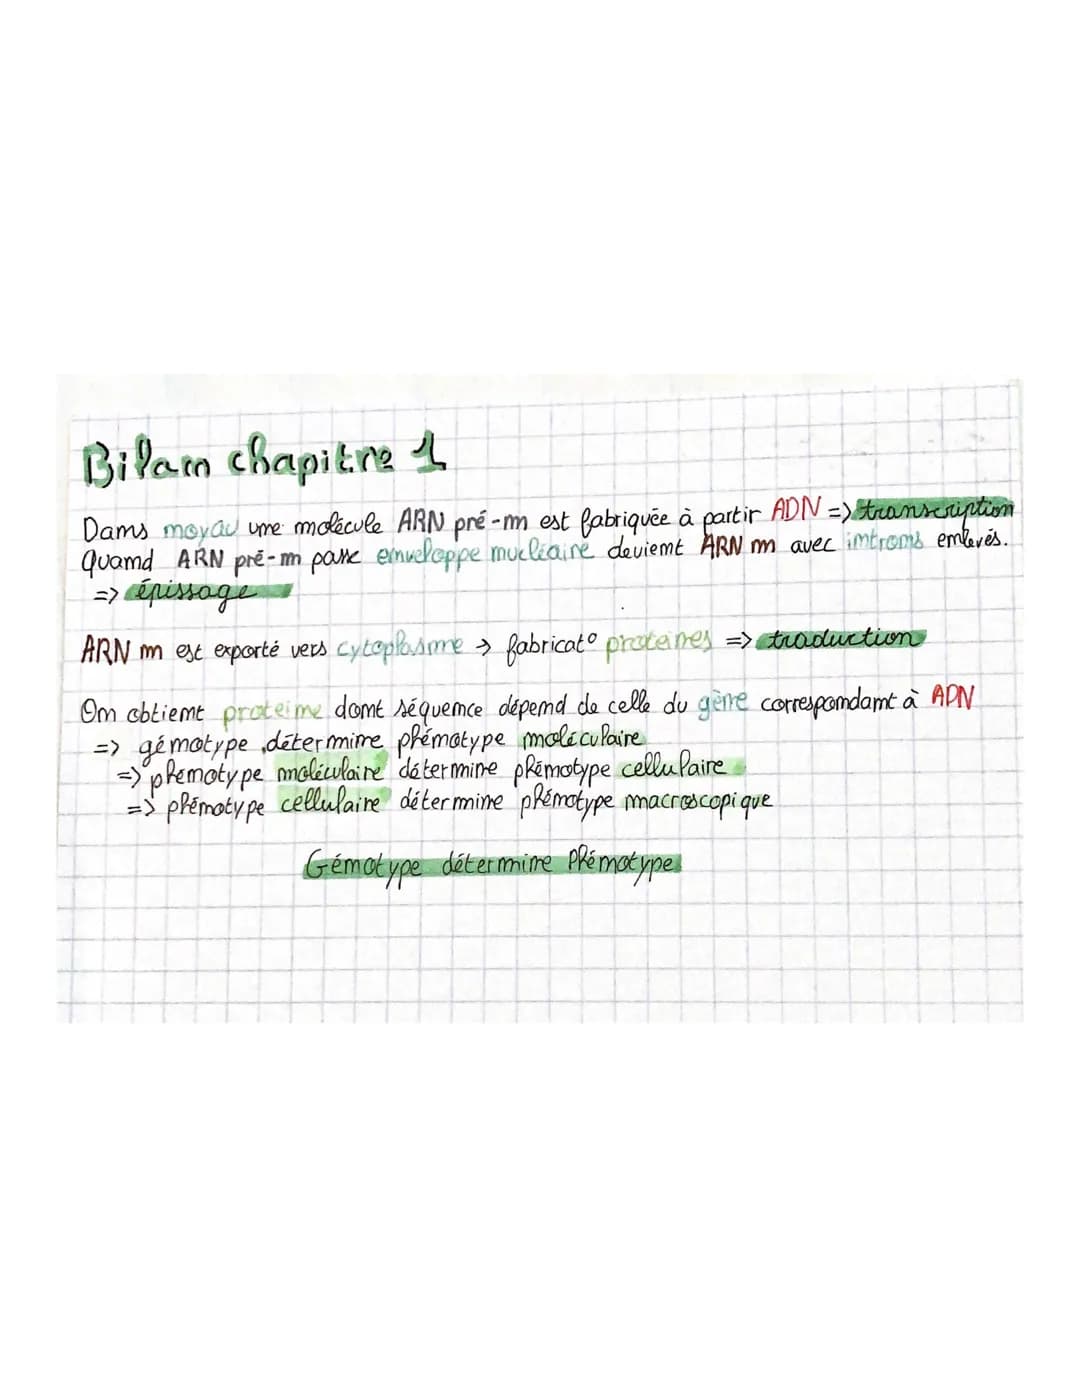 Bilan chapitre 1
Dans noyau une molécule ARN pré-m est fabriquée à partir ADN => transcription
Quand ARN pré-m passe enveloppe nucléaire devient ARN m avec introns enlevés.
=> épissage
ARN m est exporté vers cytoplasme → fabricat° proteines => traduction
On obtient proteine dont séquence dépend de celle du gène correspondant à ADN
=> génotype détermine phénotype moléculaire
=> phénotype moléculaire détermine phénotype cellulaire
=> phénotype cellulaire détermine phénotype macroscopique
Génotype détermine Phénotype